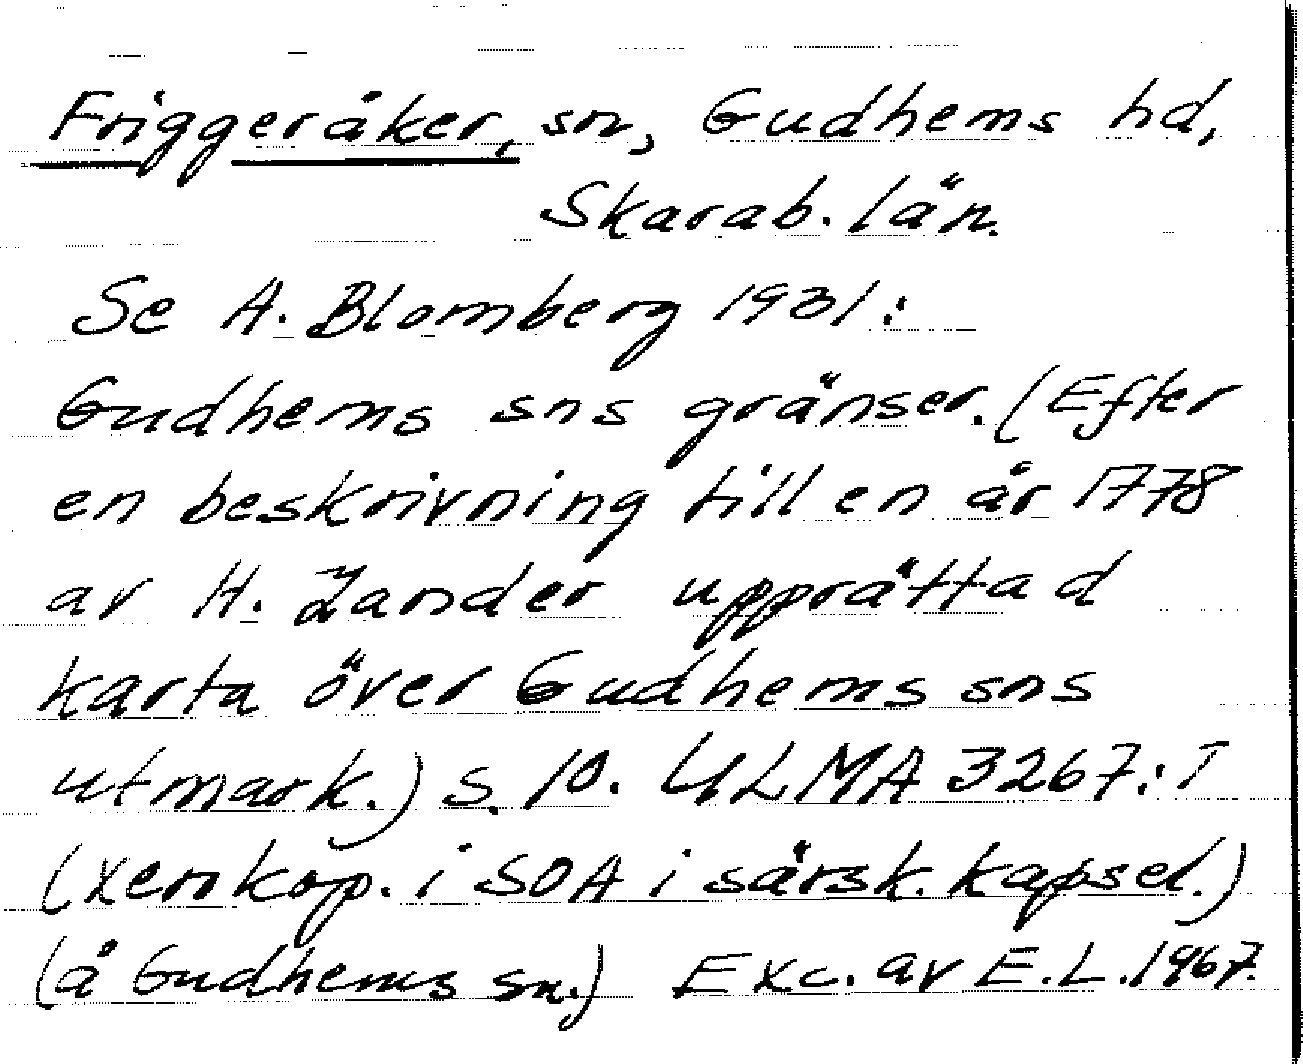 Friggeråker, sn, Gudhems hd,
Skarab. län.
Se A. Blomberg 1931:
Gudhems sns gränser. (Efter
en beskrivning till en år 1778
av H. Zander upprättad
karta över Gudhems sns
utmark.) S. 10. ULMA 3267:1
(Xerokop. i SOA i särsk. kapsel.)
(å Gudhems sn.) Exc. av E.L. 1967.